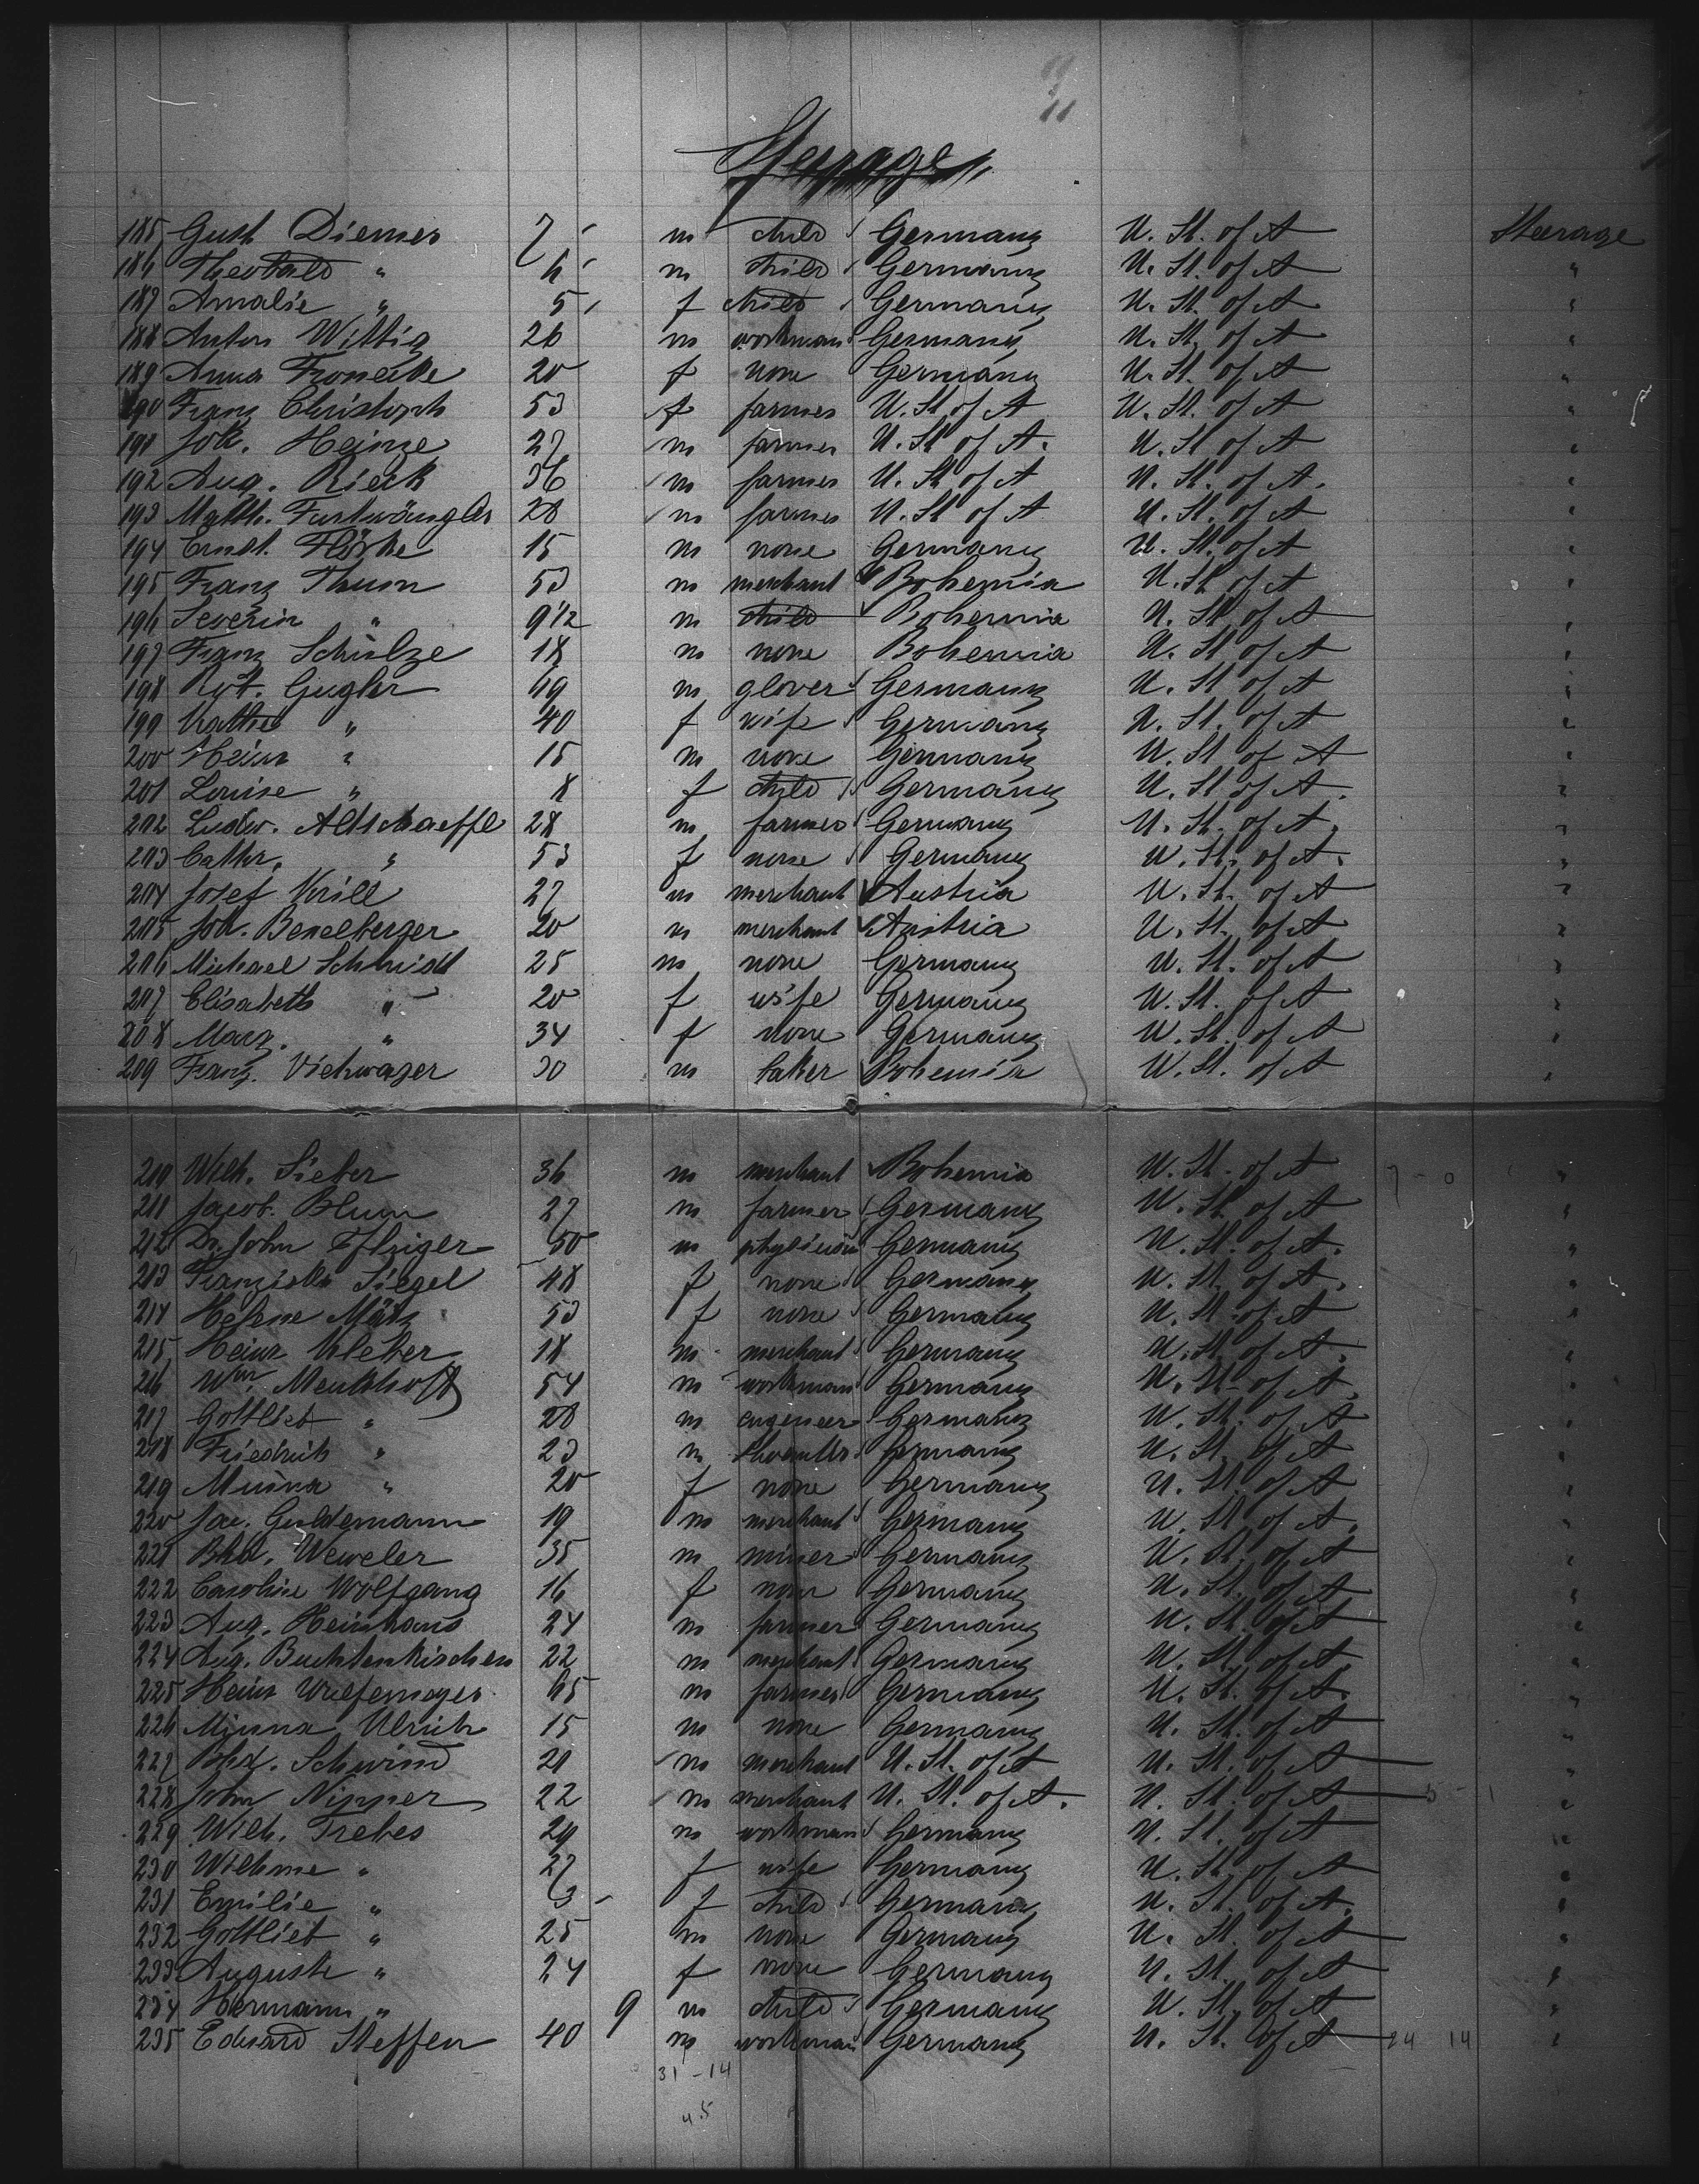 Steerage
185 Gust Diemer 7 m child Germany U. St. of A Steerage
186 Theobald " 6 m child Germany U. St. of A "
187 Amalie " 5 f child Germany U. St. of A "
188 Anton Wittig 26 m workman Germany U. St. of A "
189 Anna 20 f none Germany U. St. of A "
190 Franz Christoph 53 f farmer U. St. of A U. St. of A "
191 Joh. Heinze 27 m farmer U. St. of A. U. St. of A "
192 Aug. Rieck 36 m farmer U. St. of A U. St. of A. "
193 Matth. Furtwängler 28 m farmer U. St. of A U. St. of A "
194 Ernst. 15 m none Germany U. St. of A "
195 Franz Thum 53 m merchant Bohemia U. St. of A "
196 Severin " 9 1/2 m child Bohemia U. St. of A "
197 Franz Schulze 18 m none Bohemia U. St. of A "
198 Rob. Gugler 49 m glover Germany U. St. of A "
199 Kathe " 40 f wife Germany U. St. of A "
200 Heinr " 15 m none Germany U. St. of A "
201 Louise " 8 f child Germany U. St. of A. "
202 Ludw. Altschaeffl 28 m farmer Germany U. St. of A. "
203 Cathr. " 53 f none Germany U. St. of A. "
204 Josef Krill 27 m merchant Austria U. St. of A "
205 Joh. Benelberger 20 m merchant Austria U. St. of A "
206 Michael Schmidt 25 m none Germany U. St. of A "
207 Elisabeth " 20 f wife Germany U. St. of A "
208 Marg. " 34 f none Germany U. St. of A "
209 Franz. Viehwager 30 m baker Bohemia U. St. of A "
210 Wilh. Sieber 36 m merchant Bohemia U. St. of A 7-0 "
211 Jacob. Blum 27 m farmer Germany U. St. of A "
212 Dr. John 50 m physician Germany U. St. of A. "
213 Franziska Siegel 48 f none Germany U. St. of A. "
214 Helene 53 f none Germany U. St. of A "
215 Heinr Kleber 18 m merchant Germany U. St. of A. "
216 Wm. Menkhoff 54 m workman Germany U. St. of A. "
217 Gottlieb " 28 m engineer Germany U. St. of A "
218 Friedrich " 23 m Germany U. St. of A "
219 Minna " 20 f none Germany U. St. of A "
220 Jac. Guldemann 19 m merchant Germany U. St. of A. "
221 Bhd. Weweler 35 m miner Germany U. St. of A "
222 Caroline Wolfgang 16 f none Germany U. St. of A "
223 Aug. Heinhaus 24 m farmer Germany U. St. of A "
224 Aug. 22 m merchant Germany U. St. of A "
225 Heinr 65 m farmer Germany U. St. of A. "
226 Minna Ulrich 15 m none Germany U. St. of A "
227 Schwind 21 m merchant U. St. of A U. St. of A "
228 John Nipper 22 m merchant U. St. of A. U. St. of A 3-1 "
229 Wilh. Trebes 29 m workman Germany U. St. of A "
230 Wilhme " 27 f wife Germany U. St. of A "
231 Emilie " 3 f child Germany U. St. of A. "
232 Gottlieb " 25 m none Germany U. St. of A "
233 Auguste " 24 f none Germany U. St. of A "
234 Hermann " 9 m child Germany U. St. of A "
235 Eduard Steffen 40 m workman Germany U. St. of A 24 14 "
31-14
45